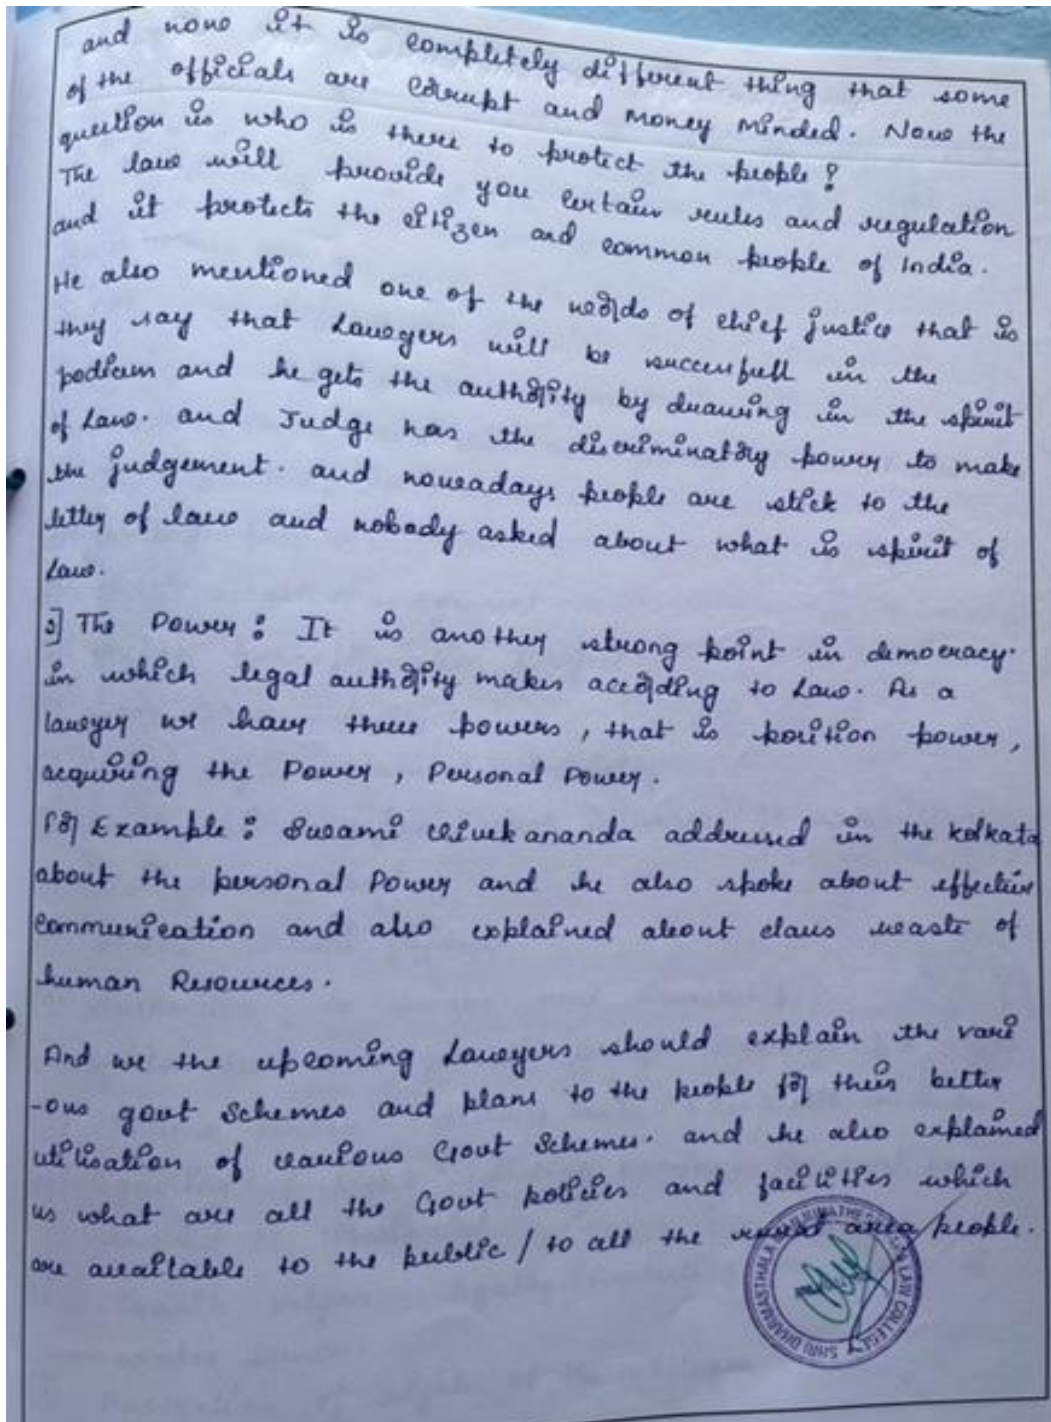 and none it is completely different thing that some
of the officials are corrupt and money minded. Now the
question is who is there to protect the people?
The law will provide you certain rules and regulation
and it protects the citizen and common people of India.
He also mentioned one of the words of chief justice that is
they say that Lawyers will be successfull in the
podium and he gets the authority by drawing in the spirit
of Law. and Judge has the discriminatory power to make
the judgement. and nowadays people are stick to the
letter of law and nobody asked about what is spirit of
Law.
The Power : It is another strong point in democracy.
in which legal authority makes according to Law. As a
lawyer we have three powers, that is position power,
acquiring the Power, Personal Power.
For Example : Swami vivekananda addressed in the kolkata
about the personal Power and he also spoke about effective
communication and also explained about waste of
human Resources.
And we the upcoming Lawyers should explain the vari
-ous govt Schemes and plans to the people for their better
utilisation of various Govt Schemes. and he also explained
us what are all the Govt policies and facilities which
are available to the public / to all the rural area people.
SHRI DHARMASTHALA MANJUNATHESHWARA LAW COLLEGE